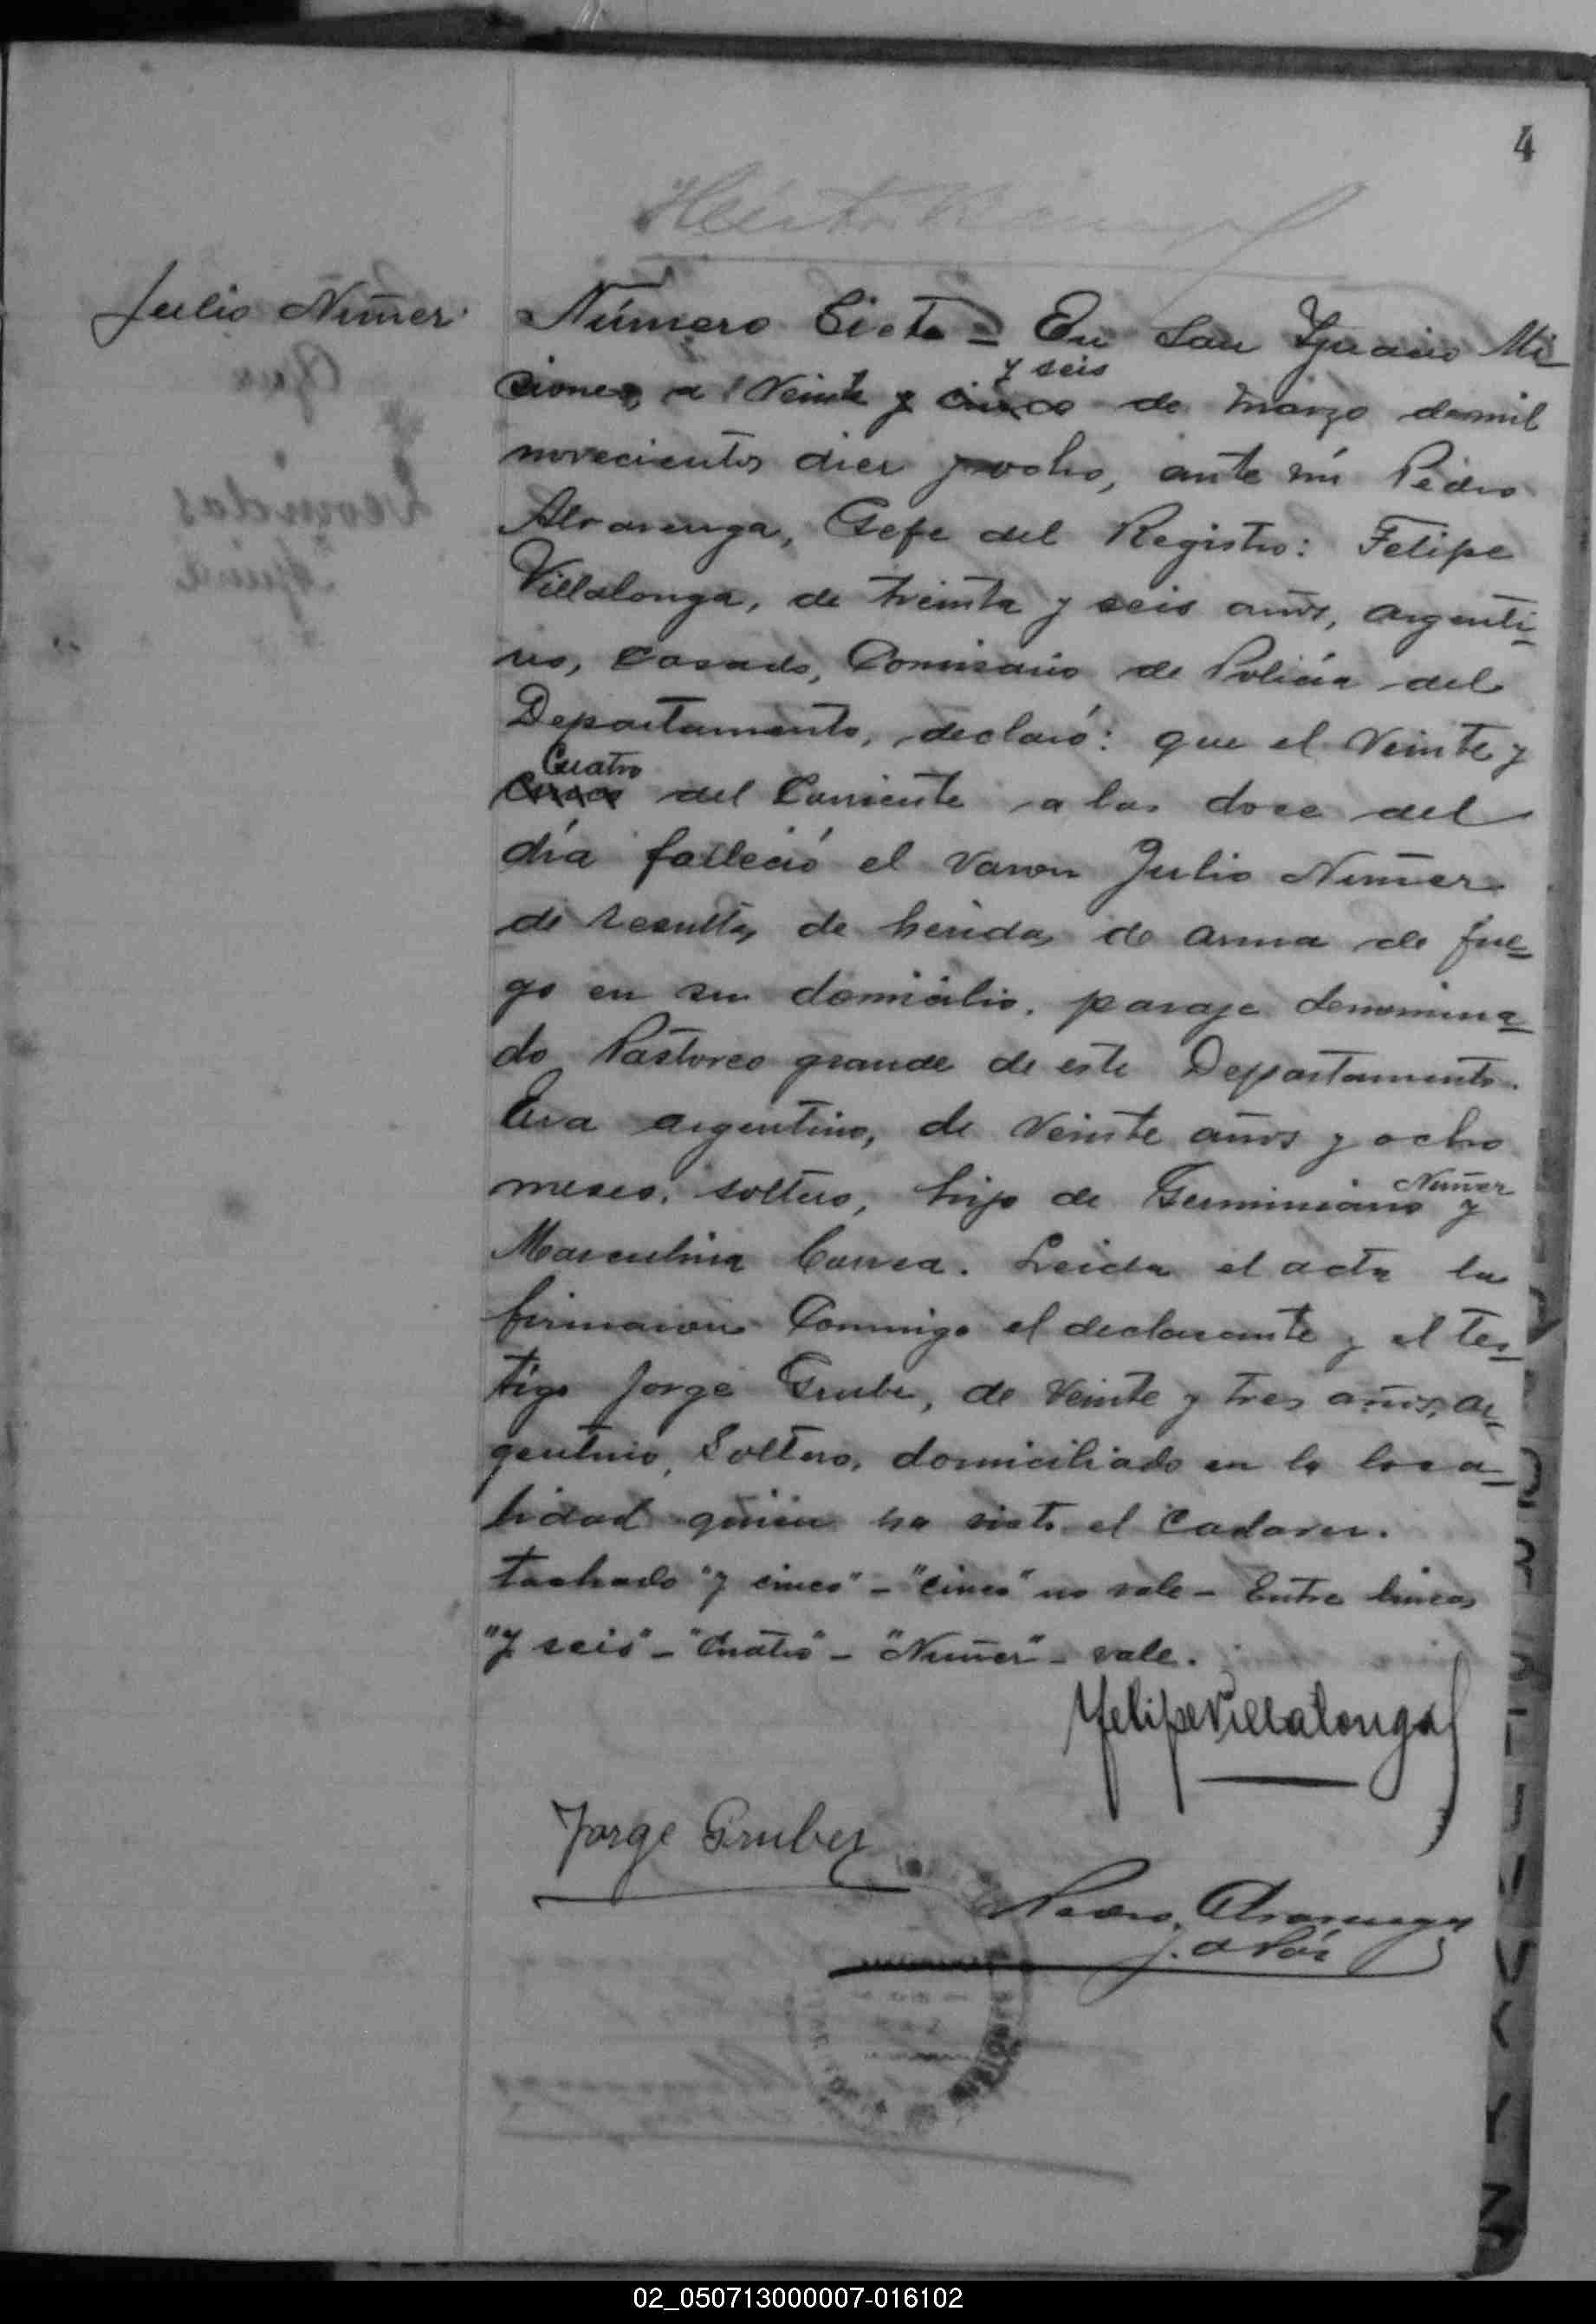 4
Julio Nuñez
Número Siete = En San Ygnacio Mi
siones, a Veinte y cinco y seis de marzo de mil
novecientos diez y ocho, ante mí Pedro
Alvarenga, Gefe del Registro: Felipe
Villalonga, de treinta y seis años, argenti-
no, Casado, Comisario de Policía del
Departamento, declaró: que el Veinte y
cinco Cuatro del Corriente a las doce del
día falleció el varon Julio Nuñez
de resultas de heridas de arma de fue-
go en su domicilio, paraje denomina-
do Pastoreo grande de este Departamento.
Era argentino, de Veinte años y ocho
meses, soltero, hijo de Geminiano Nuñez y
Marculina Correa. Leida el acta la
firmaron Conmigo el declarante y el tes-
tigo Jorge Gruber, de Veinte y tres años, ar-
gentino, Soltero, domiciliado en la loca-
lidad quien ha visto el Cadaver.
tachado "y cinco" - "cinco" no vale - Entre lineas
"y seis" - "Cuatro" - "Nuñez" - vale.
Felipe Villalonga
Jorge Gruber
Pedro Alvarenga
J. de Paz
02_050713000007-016102